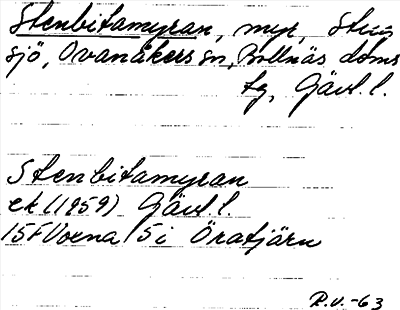 Stenbitamyran, myr, Stug
sjö, Ovanåkers sn, Bollnäs doms
tg, Gävl. l.
Stenbitamyran
ek (1959) Gävl. l.
15F Voxna 5i Öratjärn
R.V.-63